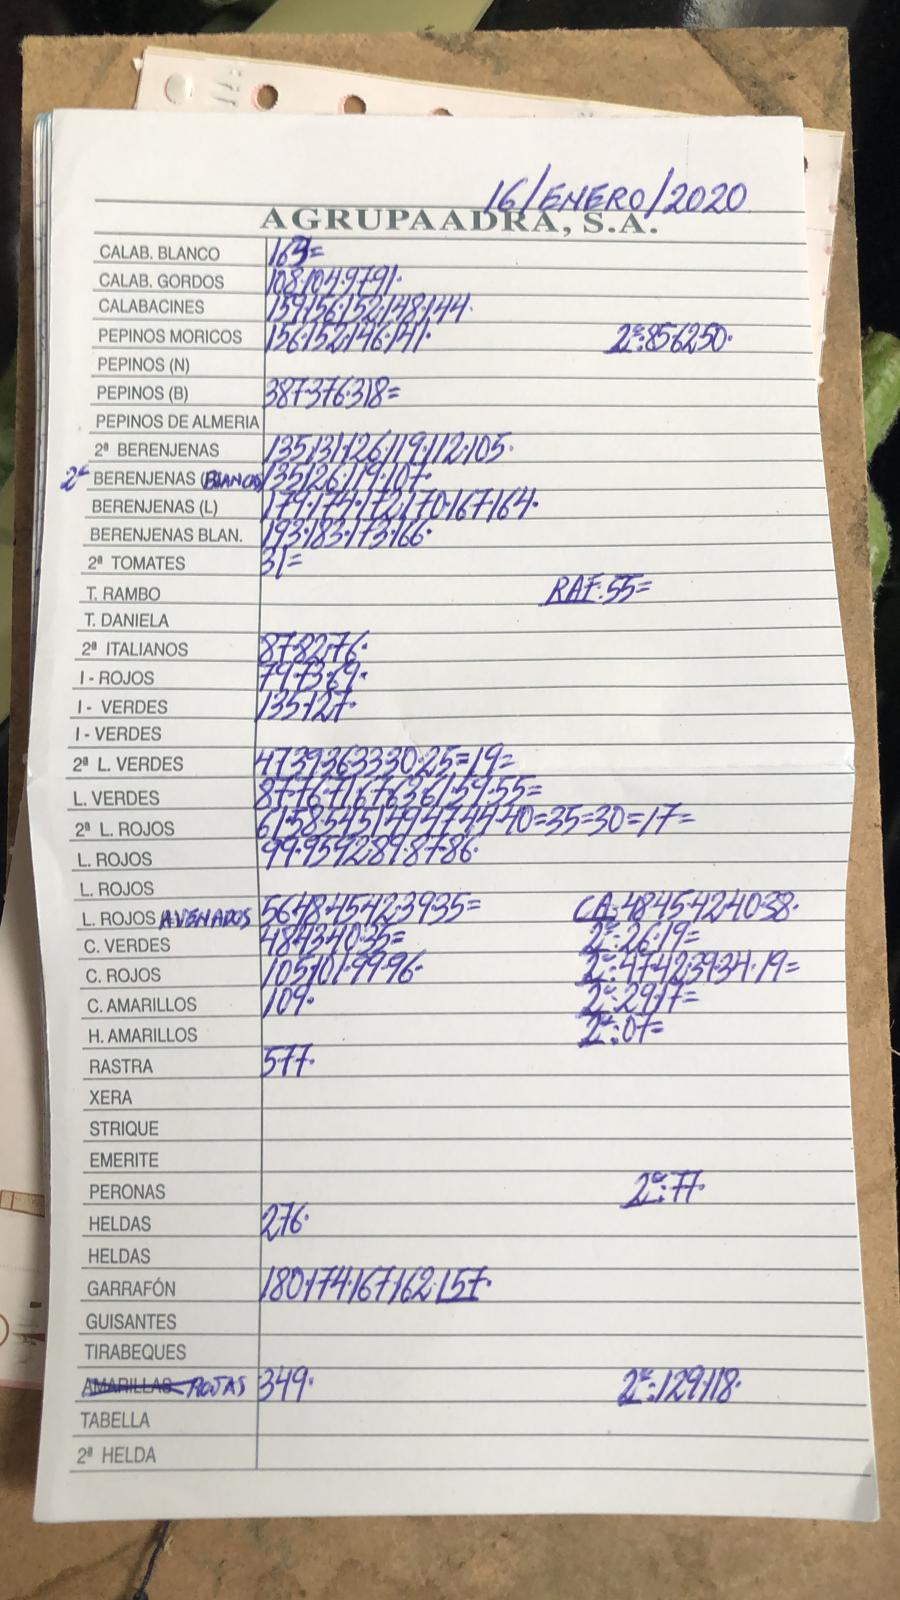 16/ENERO/2020
AGRUPAADRA, S.A.
CALAB. BLANCO 163=
CALAB. GORDOS 108·104·97·91·
CALABACINES 159·156·152·148·144·
PEPINOS MORICOS 156·152·146·141· 2ª:85·62·50·
PEPINOS (N)
PEPINOS (B) 387·376·318=
PEPINOS DE ALMERIA
2ª BERENJENAS 135·131·126·119·112·105·
2ª BERENJENAS (BLANCAS) 135·126·119·107·
BERENJENAS (L) 179·174·172·170·167·164·
BERENJENAS BLAN. 193·183·173·166·
2ª TOMATES 31=
T. RAMBO RAF:55=
T. DANIELA
2ª ITALIANOS 87·82·76·
I - ROJOS 79·73·69·
I - VERDES 135·127·
I - VERDES
2ª L. VERDES 47·39·36·33·30·25=19=
L. VERDES 87·76·71·67·63·61·59·55=
2ª L. ROJOS 61·58·54·51·49·47·44·40=35=30=17=
L. ROJOS 99·95·92·89·87·86·
L. ROJOS
L. ROJOS AVENADOS 56·48·45·42·39·35= CA:48·45·42·40·38·
C. VERDES 48·43·40·35= 2ª:26·19=
C. ROJOS 105·101·99·96· 2ª:47·42·39·34·19=
C. AMARILLOS 109· 2ª:29·17=
H. AMARILLOS 2ª:07=
RASTRA 577·
XERA
STRIQUE
EMERITE
PERONAS 2ª:77·
HELDAS 276·
HELDAS
GARRAFÓN 180·174·167·162·157·
GUISANTES
TIRABEQUES
AMARILLAS ROJAS 349· 2ª:129·118·
TABELLA
2ª HELDA